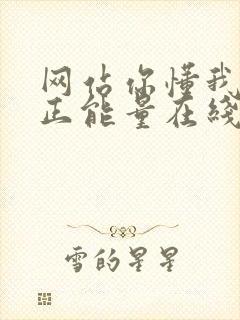 网站你懂我
正能量在线
雪的星星